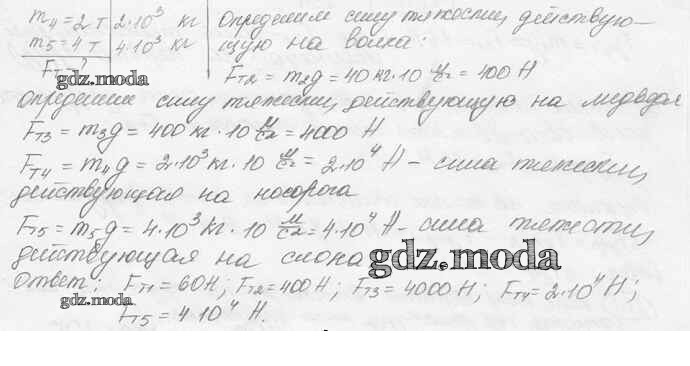 m₄=2 т | 2·10³ кг | Определим силу тяжести, действую-
m₅=4 т | 4·10³ кг | щую на волка:
Fт-?
gdz.moda
Fт2 = m₂g = 40 кг·10 м/с² = 400 Н
определим силу тяжести, действующую на медведя
Fт3 = m₃g = 400 кг·10 м/с² = 4000 Н
Fт4 = m₄g = 2·10³ кг·10 м/с² = 2·10⁴ Н – сила тяжести,
действующая на носорога
Fт5 = m₅g = 4·10³ кг·10 м/с² = 4·10⁴ Н – сила тяжести,
действующая на слона
gdz.moda
Ответ: Fт1 = 60Н; Fт2 = 400 Н; Fт3 = 4000 Н; Fт4 = 2·10⁴ Н;
gdz.moda
Fт5 = 4·10⁴ Н.